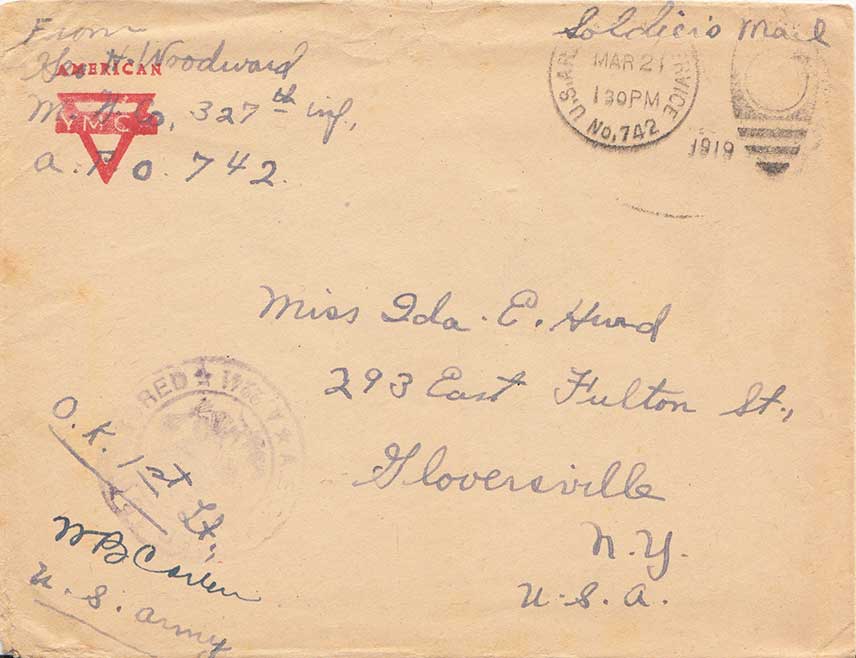 From
Geo. H. Woodward
AMERICAN
YMCA
M. G. Co., 327th Inf.,
A. P. O. 742.
Soldier's Mail
U.S. AR SERVICE
MAR 21
130PM
No. 742
1919
Miss Ida E. Hurd
293 East Fulton St.,
Gloversville
N.Y.
U.S.A.
RED ★
O.K. 1st Lt.,
W B
U.S. Army